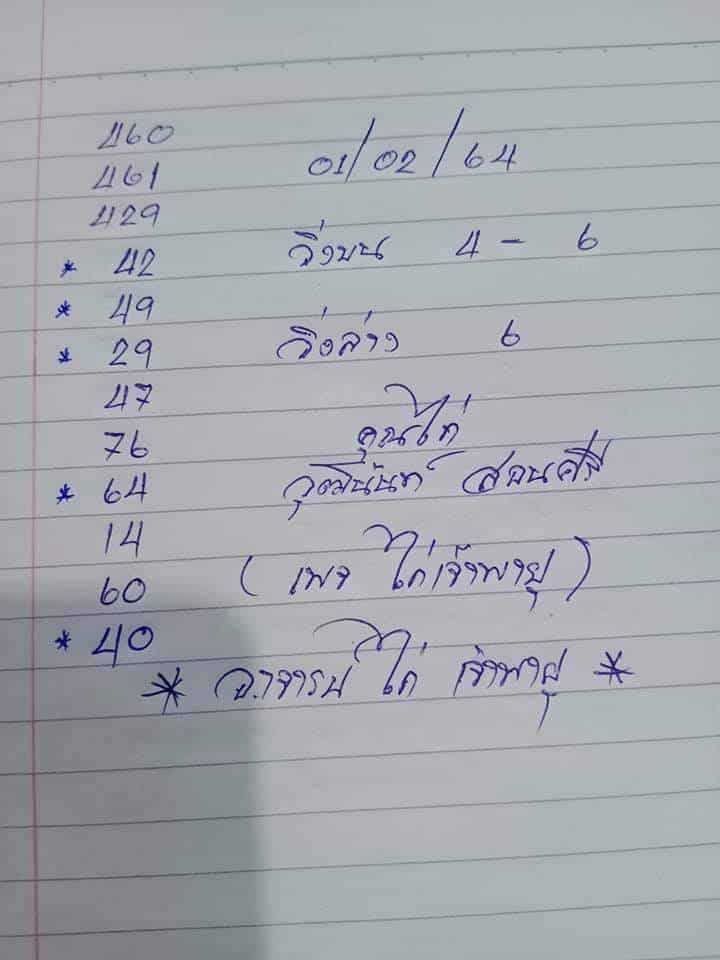 460
461
429
* 42
* 49
* 29
47
76
* 64
14
60
* 40
01/02/64
วิ่งบน 4 - 6
วิ่งล่าง 6
คุณไก่
วุฒินันท์ สอนศรี
( เพจ ไก่เจ้าพายุ )
* อ.จารย์ ไก่ เจ้าพายุ *